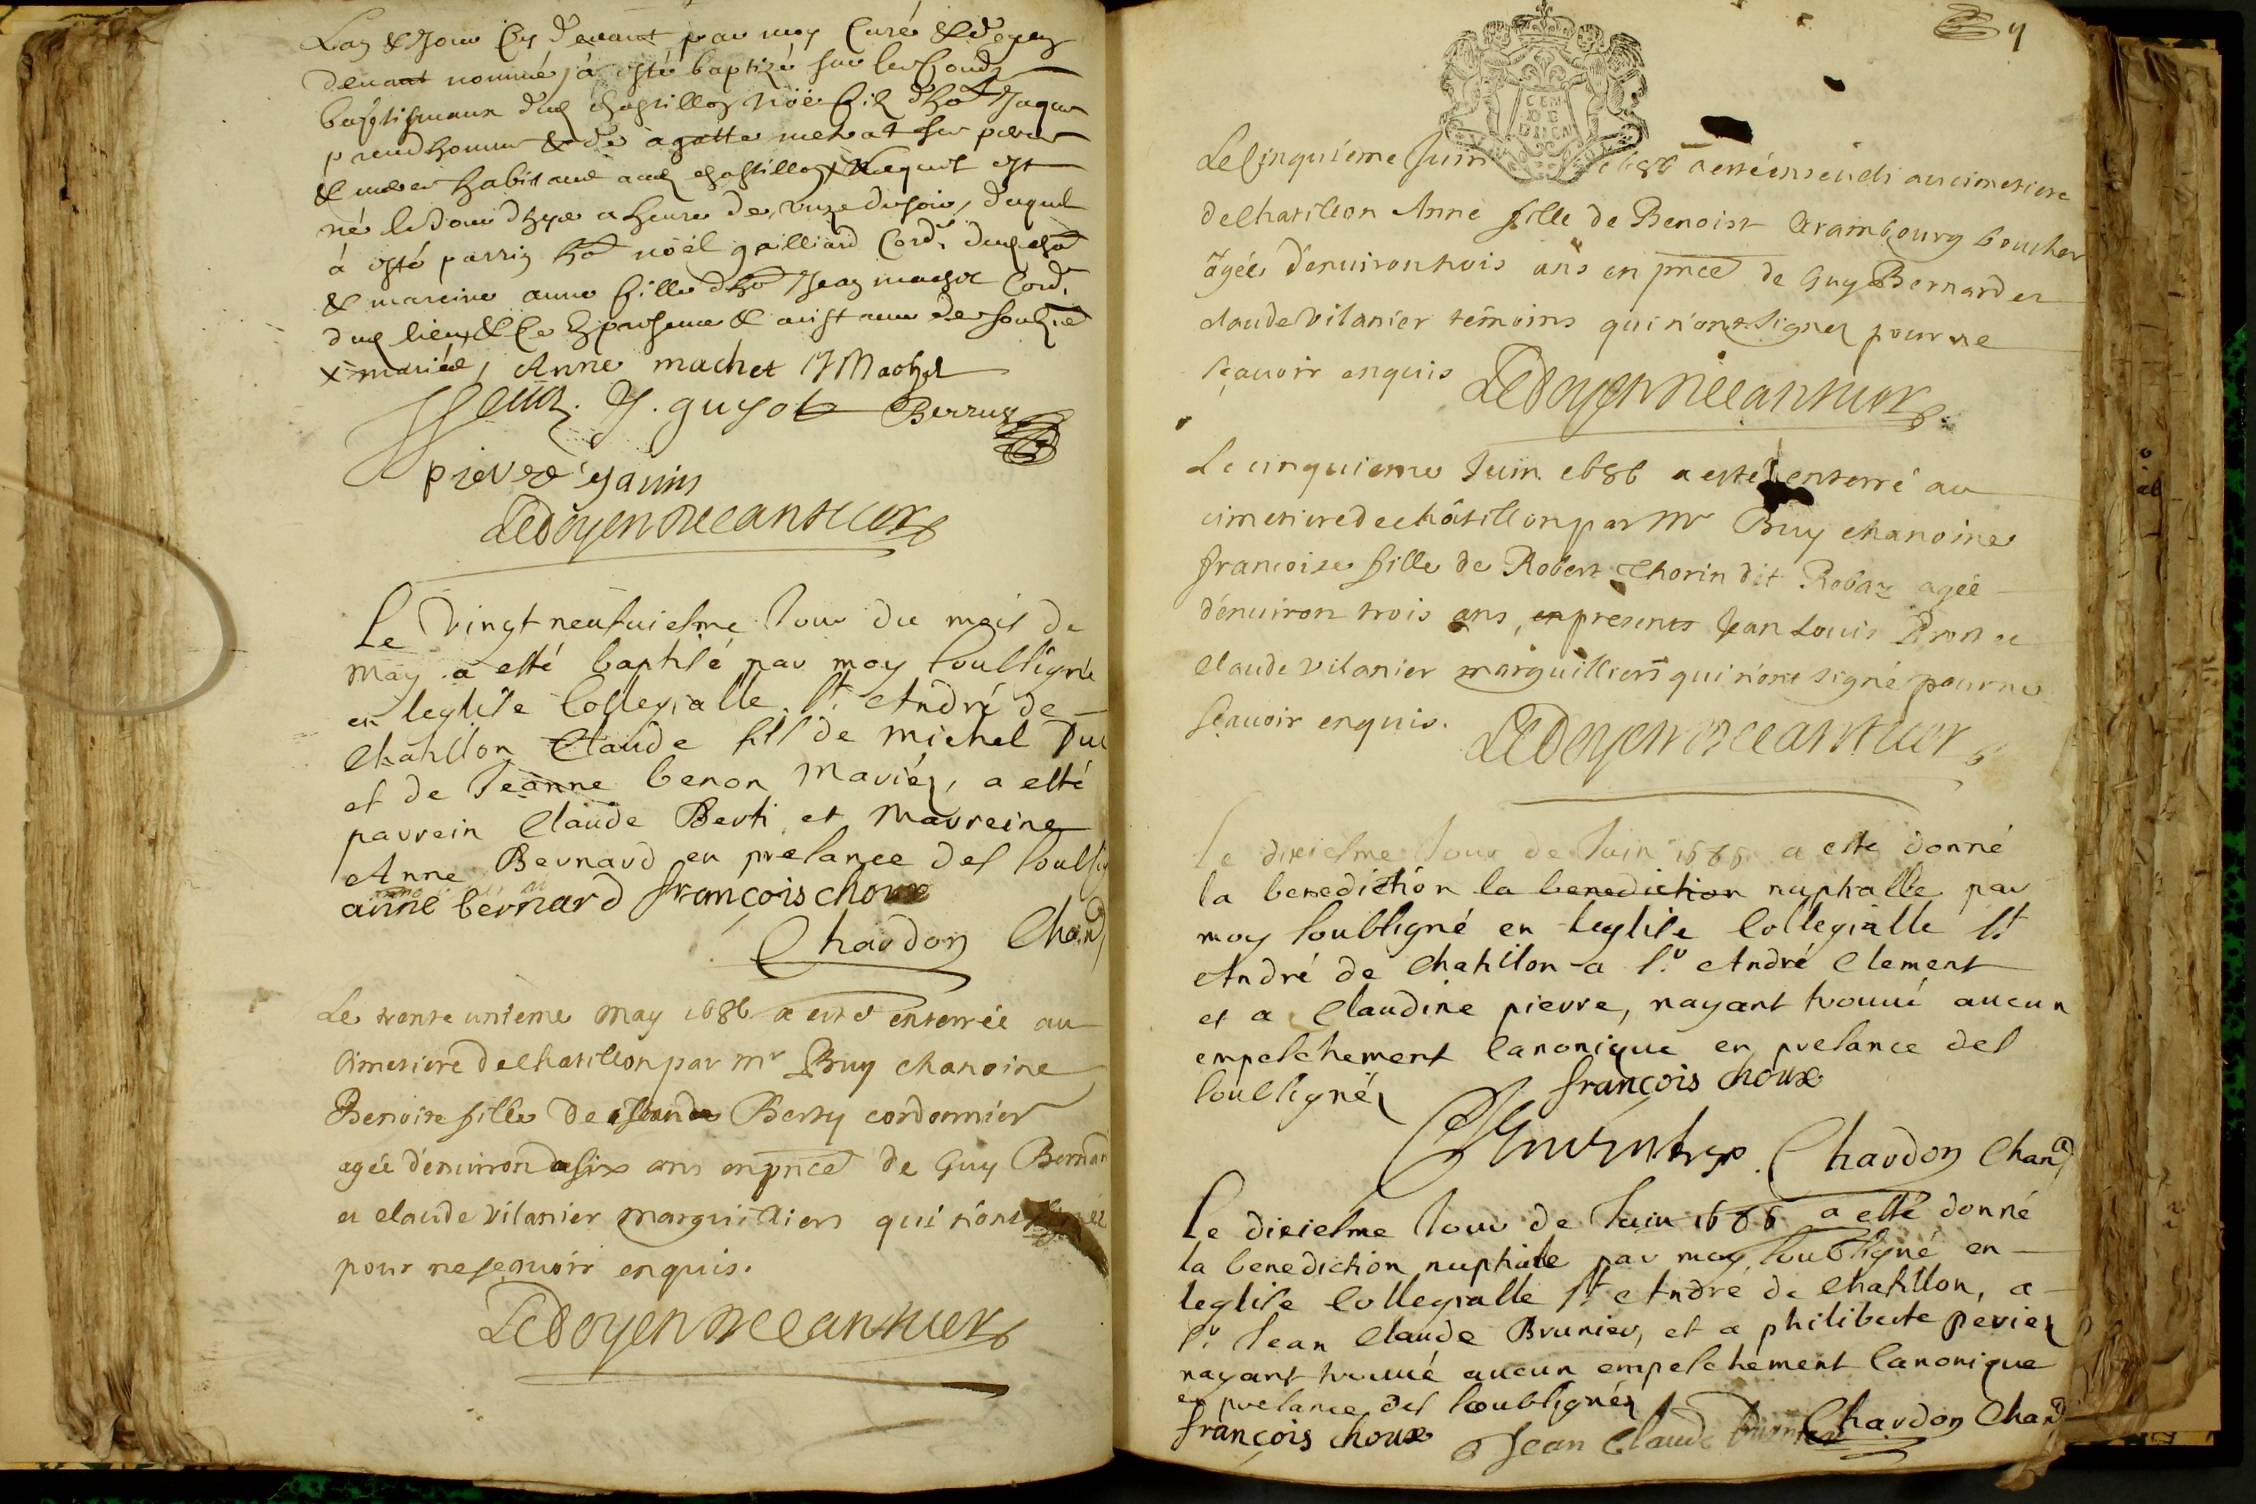 Lan & Jour Cy devant par moy Curé & doyen
devant nommé, à esté baptizé sur les fonds
baptismaux dud chastillon Noël filz d'ho. Jaque
preudhomme & de agatte metrat ses pere
& mere habitans aud chastillon, Lequel est
né le Jour d'hyer a heure de unze du soir, duquel
à esté parrin ho. noël gailliard Cord. dud cha
& mareine anne fille d'ho Jean machet Cord.
dud lieu, & Ce En presence & assistance des soubzne
x mariée, Anne machet Machet
J. guyot Berruz
pierre Janin
Ledoyen Decanthier
Le vingt neufuiesme Jour du mois de
May a esté baptisé par moy soussigné
en leglise Collegialle St. André de
Chatillon Claude fils de michel Du
et de Jeanne benon Mariéz, a esté
parrein Claude Berti et Marreine
Anne Bernard en presance des soussig
anne bérnard françois choux
Chardon Chan
Le trente unieme may 1686 a esté enterrée au
Cimetiere de chatillon par mr Bruy chanoine
Benoite fille de Berty cordonnier
agée d'environ six ans en pnce de Guy Bernar
et claude vilanier marguilliers qui n'ont signéz
pour ne scavoir enquis.
Ledoyen Decanthier
9
CEN
DE
DIJON
Le Cinquième Juin 1686 a esté enseueli au cimetiere
de Chatillon Anne fille de Benoist Grambourg boucher
agée d'enuiron trois ans en pnce de Guy Bernard et
claude vilanier témoins qui n'ont signer pour ne
sçavoir enquis Ledoyen Decanthier
Le cinquieme Juin 1686 a esté enterré au
cimetiere de châtillon par Mr Bruy chanoine
francoise fille de Robert Thorin dit Robaz agée
d'enuiron trois ans, en presents Jean Louis Pron et
Claude vilanier marguilliers qui n'ont signé pour ne
scauoir enquis. Ledoyen Decanthier
Le dixiesme Jour de Juin 1686 a esté donné
la benediction la benediction nuptialle par
moy soubsigné en leglise Collegialle St
André de Chatillon a Sr André Clement
et a Claudine pierre, nayant trouué aucun
empeschement Canonique en presance des
soubsignéz françois choux
Chardon Chan
Le dixiesme Jour de Juin 1686 a esté donné
la benediction nuptiale par moy soubsigné en
leglise Collegialle St André de Chatillon, a
Sr Jean Claude Brunier, et a philiberte perier
nayant trouué aucun empeschement Canonique
en presance des soubsignéz
françois choux Jean Claude brunier Chardon Chan